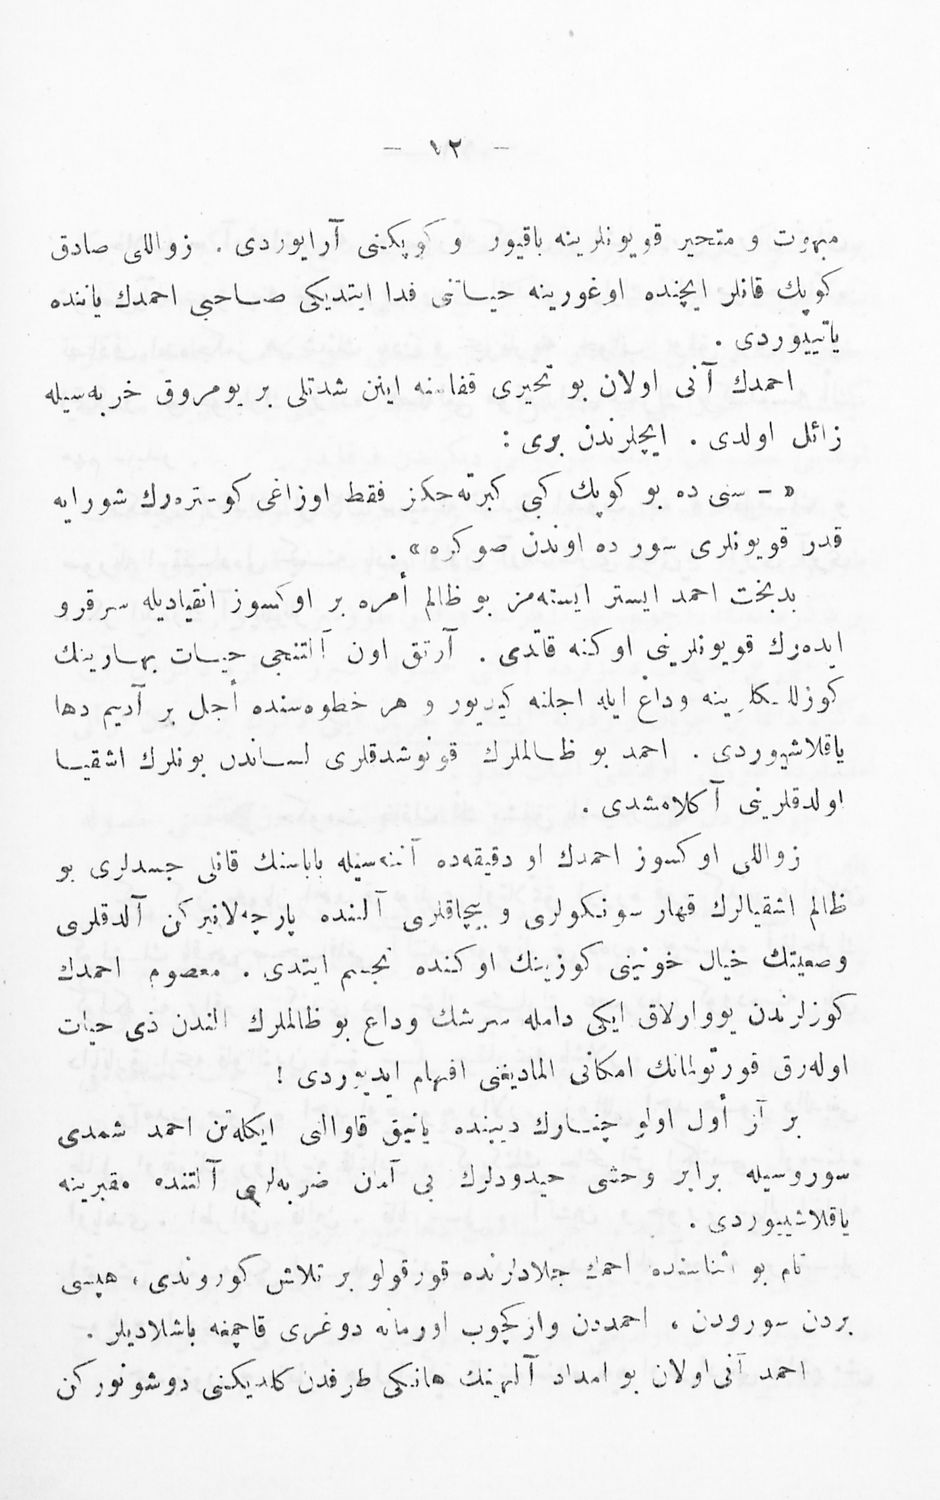 — ١٢ —
مبهوت و متحير قويونلرينه باقيور و كوپكنى آرايوردى . زواللى صادق
كوپك قانلر ايچنده اوغورينه حياتنى فدا ايتديكى صاحبى احمدك ياننده
ياتييوردى .
احمدك آنى اولان بو تحيرى قفاسنه اينن شدتلى بر يومروق ضربه‌سيله
زائل اولدى . ايچلرندن برى :
« — سنى ده بو كوپك كبى كبرته‌جكز فقط اوزاغى كوستره‌رك شورايه
قدر قويونلرى سور ده اوندن صوكره » .
بدبخت احمد ايستر ايسته‌مز بو ظالم أمره بر اوكسوز انقياديله سرفرو
ايده‌رك قويونلرينى اوكنه قاتدى . آرتق اون آلتنجى حيات بهارينك
كوزللكلرينه وداع ايله اجلنه كيديور و هر خطوه‌سنده أجل بر آديم دها
ياقلاشيوردى . احمد بو ظالملرك قونوشدقلرى لساندن بونلرك اشقيا
اولدقلرينى آكلامشدى .
زواللى اوكسوز احمدك او دقيقه‌ده آننه‌سيله باباسنك قانلى جسدلرى بو
ظالم اشقيالرك قهار سونكولرى و بيچاقلرى آلتنده پارچه‌لانيركن آلدقلرى
وضعيتك خيال خونينى كوزينك اوكنده تجسم ايتدى . معصوم احمدك
كوزلرندن يووارلاق ايكى دامله سرشك وداع بو ظالملرك الندن ذى حيات
اوله‌رق قورتولمانك امكانى الماديغنى افهام ايدييوردى !
بر آز أول اولو چنارك ديبنده يانيق قاوالنى ايكله‌تن احمد شمدى
سوروسيله برابر وحشى حيدودلرك بى آمان ضربه‌لرى آلتنده مقبرينه
ياقلاشييوردى .
تام بو اثناسنده احمدك جلادلرنده قورقولو بر تلاش كوروندى ، هپسى
بردن سورودن ، احمددن وازكچوب اورمانه دوغرى قاچمغه باشلاديلر .
احمد آنى اولان بو امداد آلهينك هانكى طرفدن كلديكنى دوشونوركن